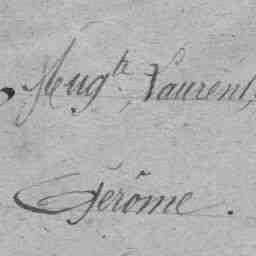 Hugh, Laurent,
Gérôme.